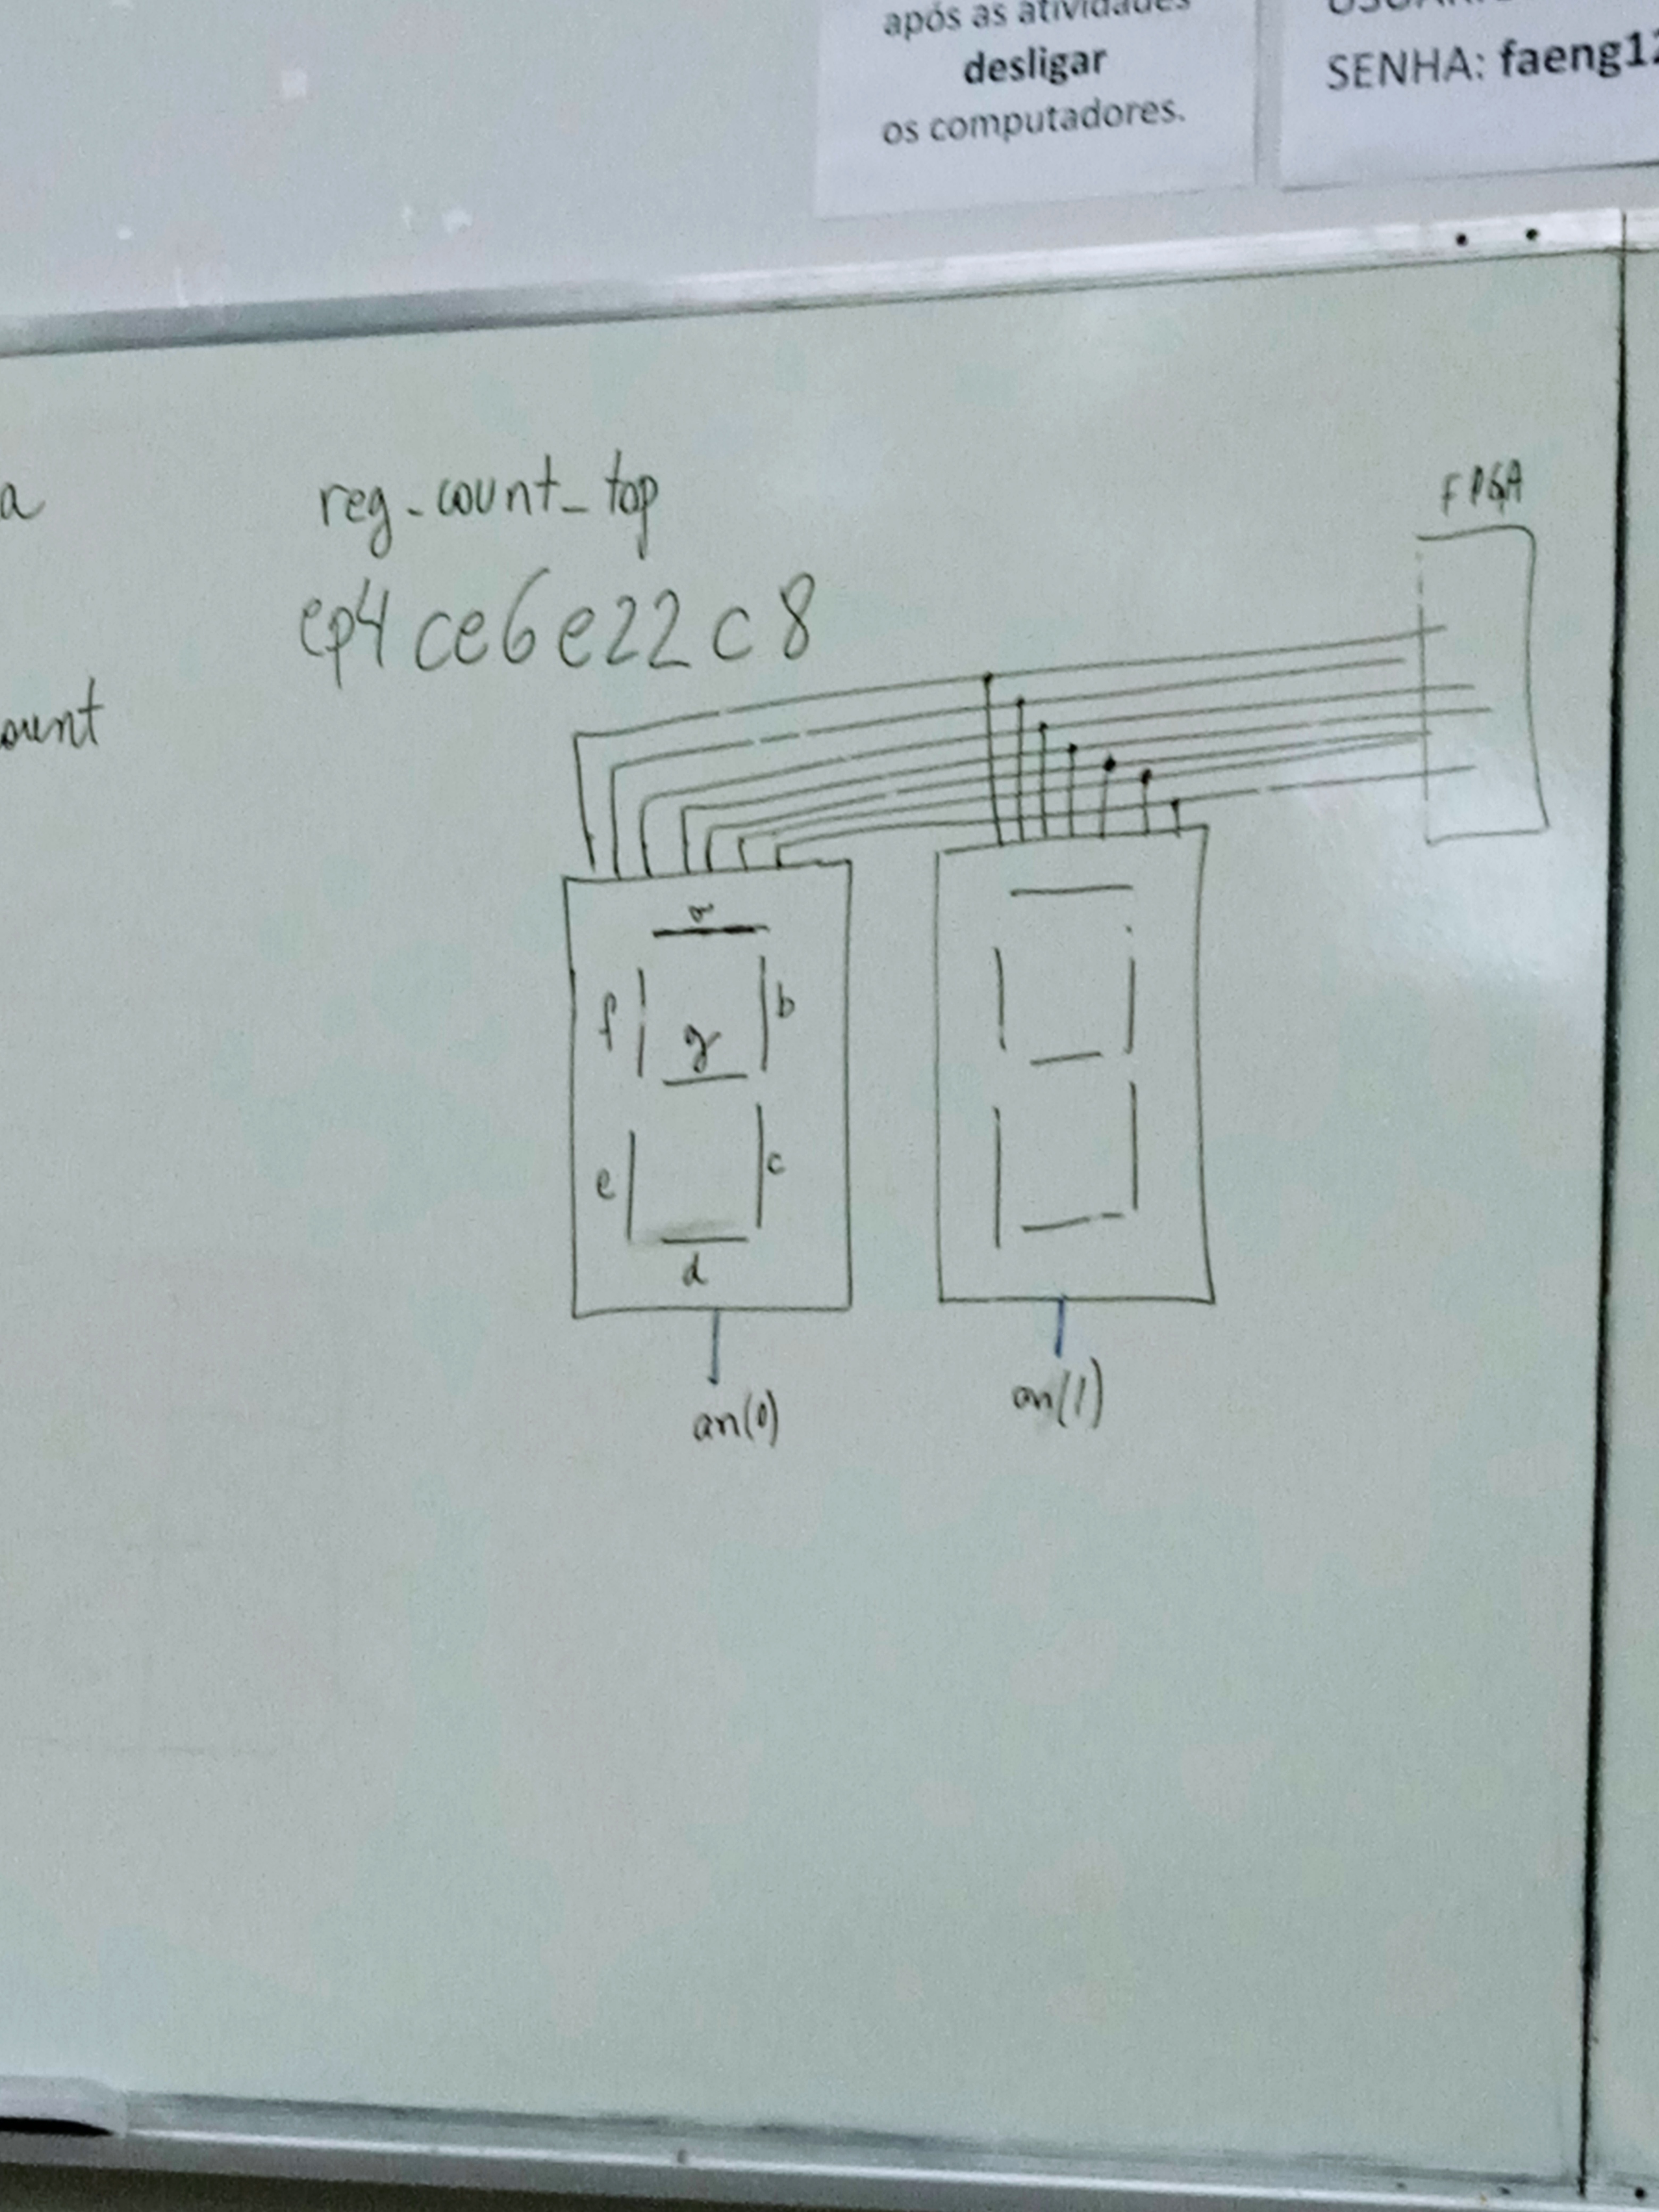 após as atividades
desligar
os computadores.
SENHA: faeng12
a
reg_count_top
FPGA
ep4ce6e22c8
ount
a
f
b
g
e
c
d
an(0)
an(1)